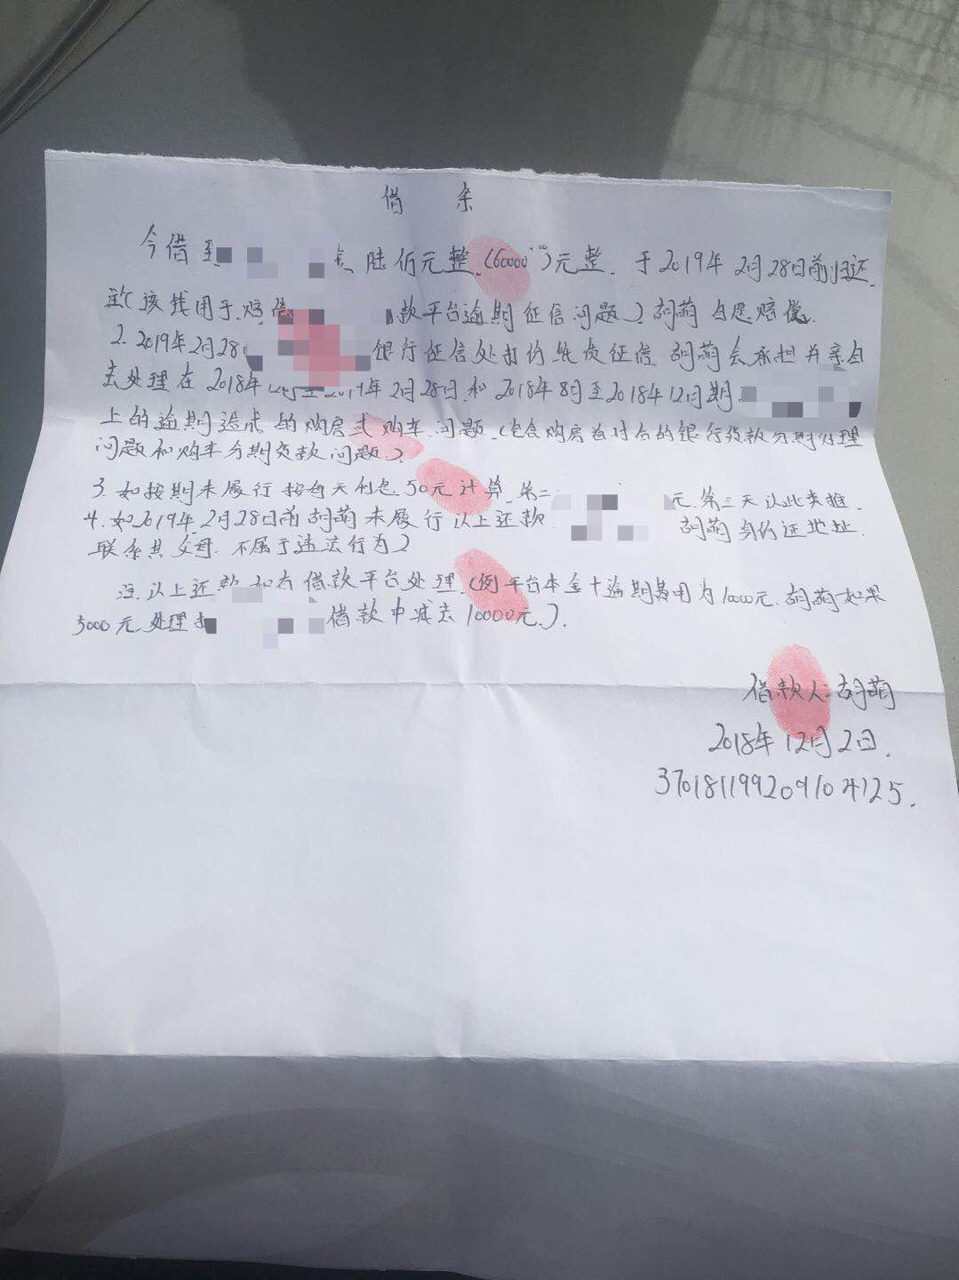 借 条
今借到 金 陆仟元整(60000)元整. 于2019年2月28日前归还.
款平台逾期征信问题)胡萌自愿赔偿
2.2019年2月28 银行征信处打印 征信 胡萌会承担并亲自
去处理在2018年12月至2019年2月28日和2018年8月至2018年12月期
上的逾期造成的购房或购车问题.(包含购房首付合的银行贷款分期办理
问题和购车分期贷款问题.)
3.如按期未履行按每天利息50元计算.第二 元.第三天以此类推
4.如2019年2月28日前胡萌未履行以上还款 胡萌身份证地址.
联系其父母.不属于违法行为)
注.以上还款如有借款平台处理.(例平台本金十逾期费用为10000元.胡萌如果
5000元处理 借款中减去10000元.)
借款人:胡萌
2018年12月2日.
370181199209104125.